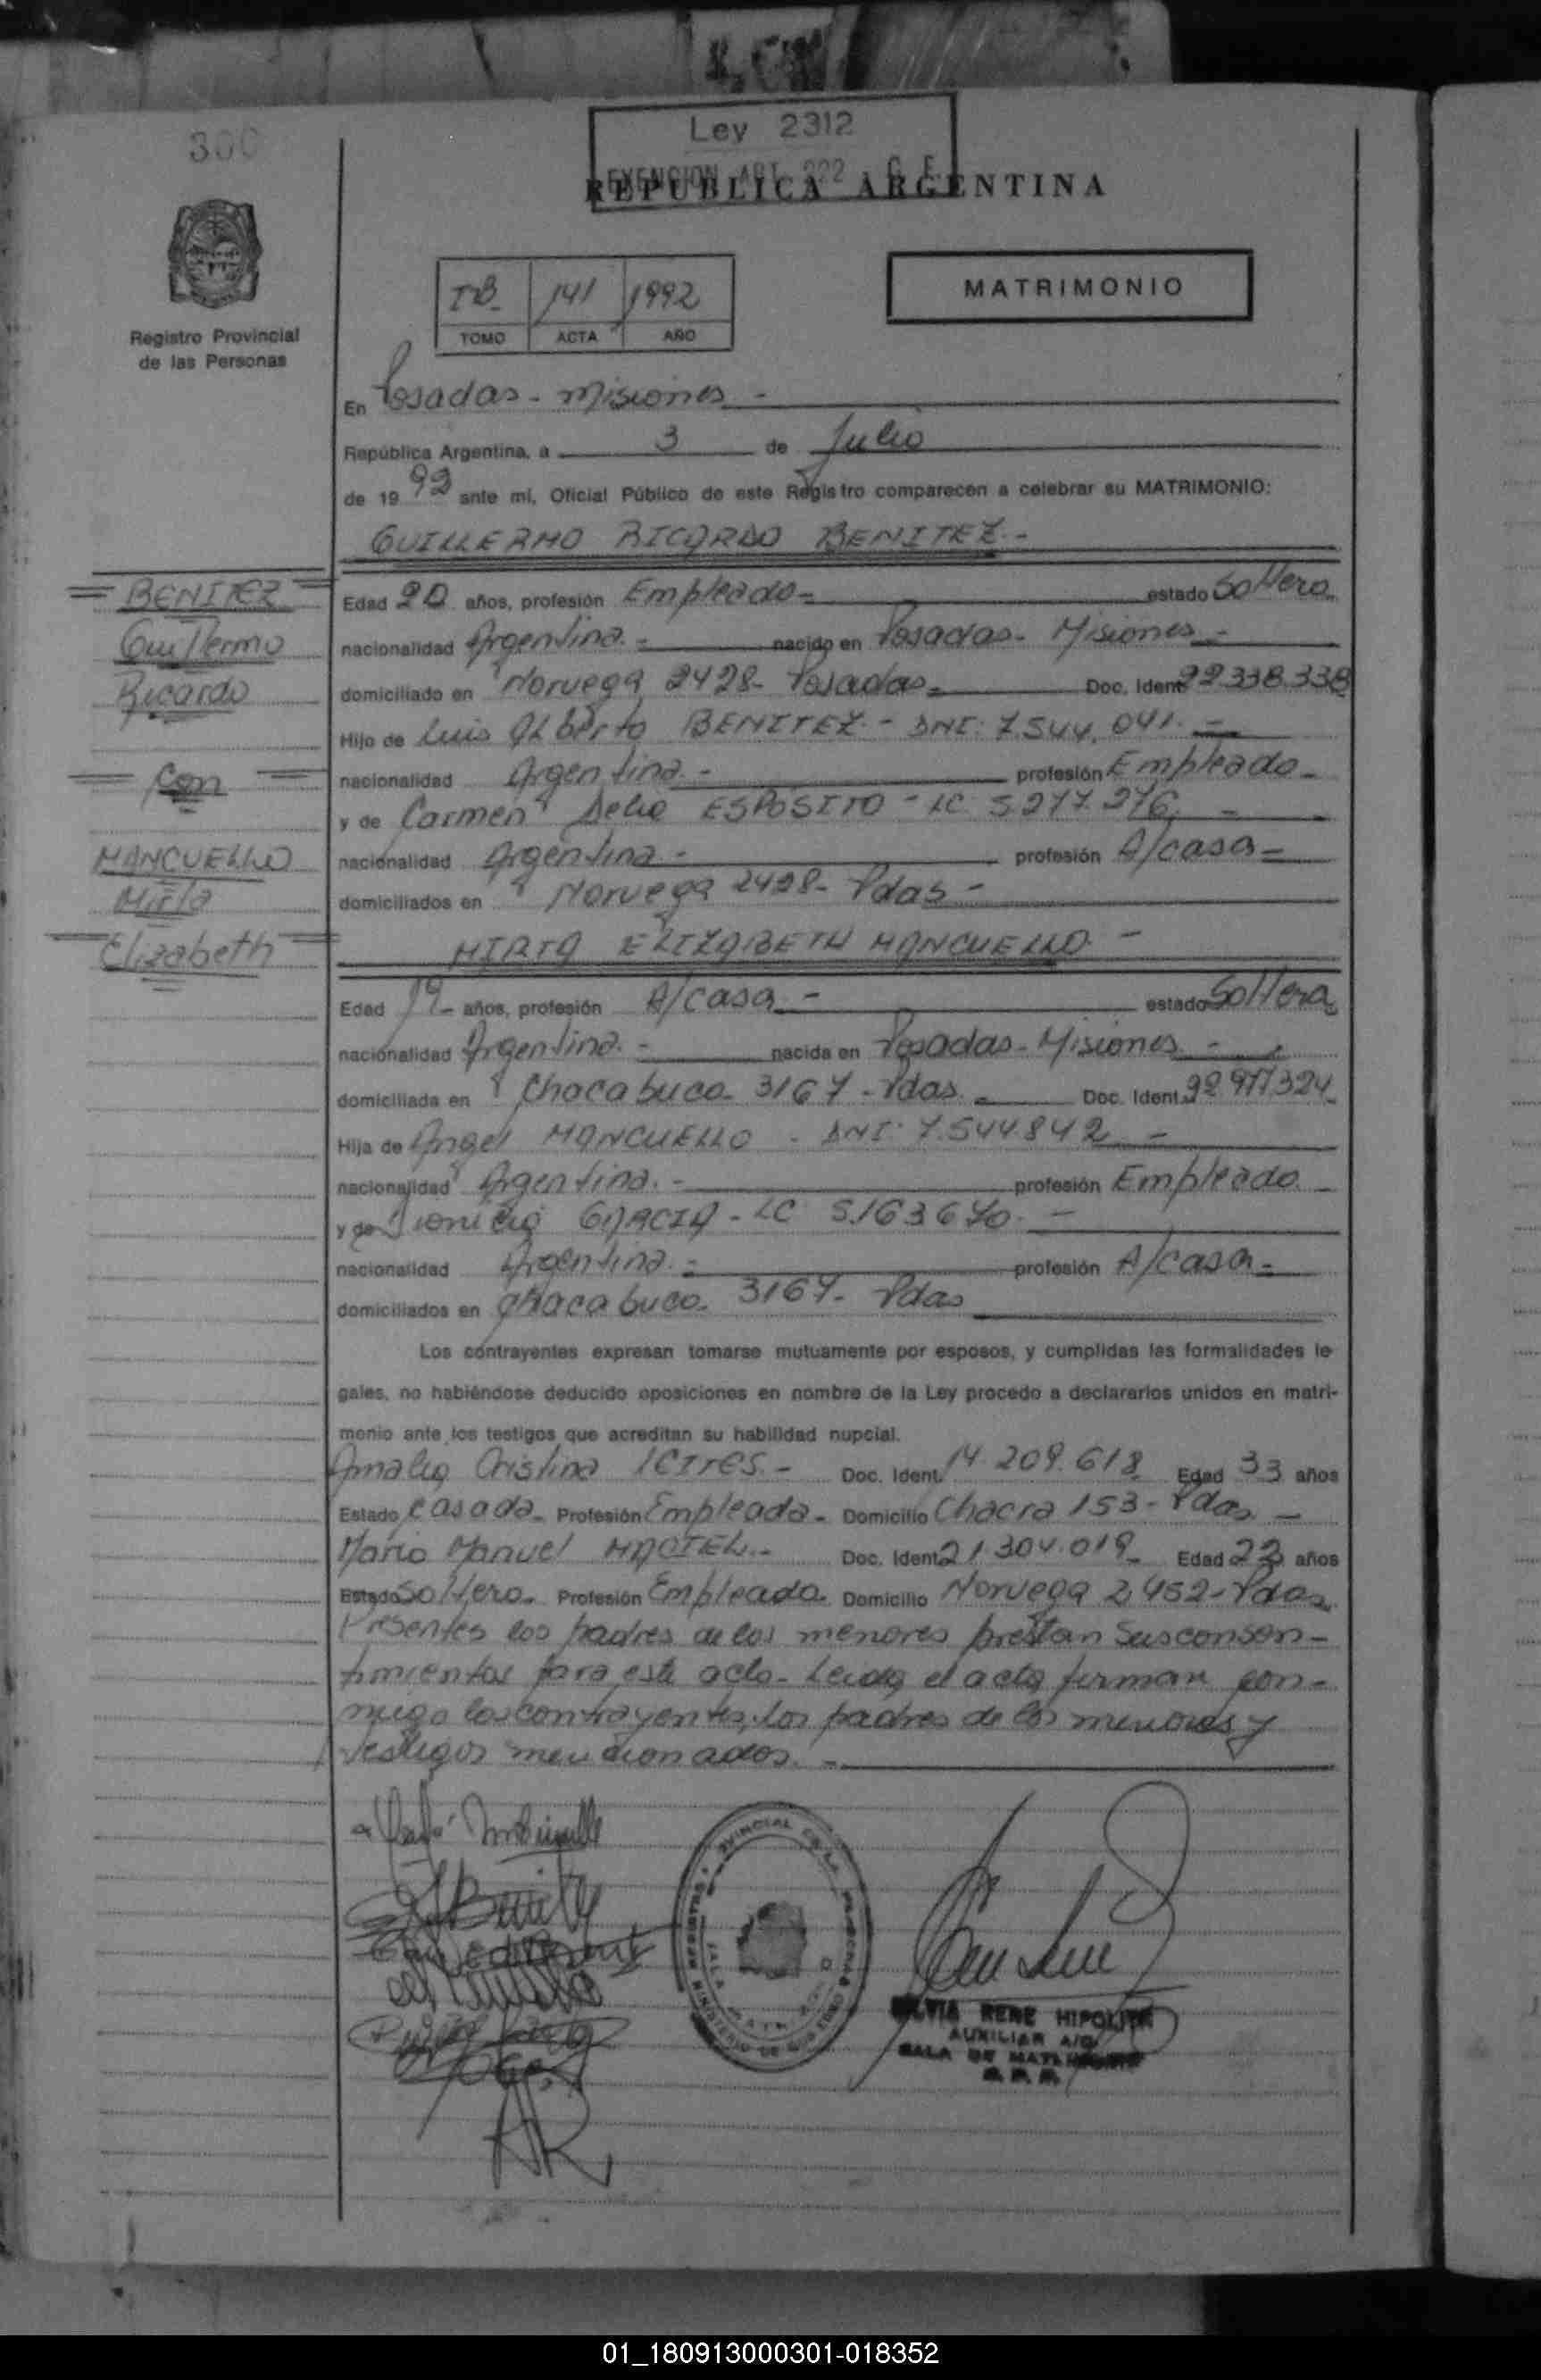 300
Ley 2312
EXENCION ART. 222 C. F.
REPUBLICA ARGENTINA
Registro Provincial
de las Personas
141 1992
TOMO ACTA AÑO
MATRIMONIO
En Posadas - Misiones -
República Argentina, a 3 de Julio
de 1992 ante mi, Oficial Público de este Registro comparecen a celebrar su MATRIMONIO:
GUILLERMO RICARDO BENITEZ -
BENITEZ
Guillermo
Ricardo
Con
MANCUELLO
Mirta
Elizabeth
Edad 20 años, profesión Empleado - estado Soltero
nacionalidad Argentina - nacido en Posadas - Misiones -
domiciliado en Noruega 2428 - Posadas - Doc. Ident. 22.338.338
Hijo de Luis Alberto BENITEZ - DNI: 7.544.041 -
nacionalidad Argentina - profesión Empleado -
y de Carmen Delia ESPOSITO - LC 5.277.276 -
nacionalidad Argentina - profesión A/casa -
domiciliados en Noruega 2428 - Pdas -
MIRTA ELIZABETH MANCUELLO -
Edad 19 - años, profesión A/casa - estado Soltera
nacionalidad Argentina - nacida en Posadas - Misiones -
domiciliada en Chacabuco 3167 - Pdas - Doc. Ident. 92.977.324
Hija de Angel MANCUELLO - DNI: 7.544.842 -
nacionalidad Argentina - profesión Empleado -
y de Dionicia GRACIA - LC 5.163.640 -
nacionalidad Argentina - profesión A/casa -
domiciliados en Chacabuco 3167 - Pdas
Los contrayentes expresan tomarse mutuamente por esposos, y cumplidas las formalidades le
gales, no habiéndose deducido oposiciones en nombre de la Ley procedo a declararlos unidos en matri-
monio ante los testigos que acreditan su habilidad nupcial.
Amalia Cristina - Doc. Ident. 14.209.618 Edad 33 años
Estado Casada - Profesión Empleada - Domicilio Chacra 153 - Pdas -
Mario Manuel - Doc. Ident. 21.304.019 - Edad 22 años
Estado Soltero - Profesión Empleado Domicilio Noruega 2452 - Pdas
Presentes los padres de los menores prestan sus consen-
timientos para este acto - Leida el acta firman con-
migo los contrayentes, los padres de los menores y
testigos mencionados. -
SILVIA RENE HIPOLITA
AUXILIAR A/C
SALA DE MATRIMONIO
01_180913000301-018352